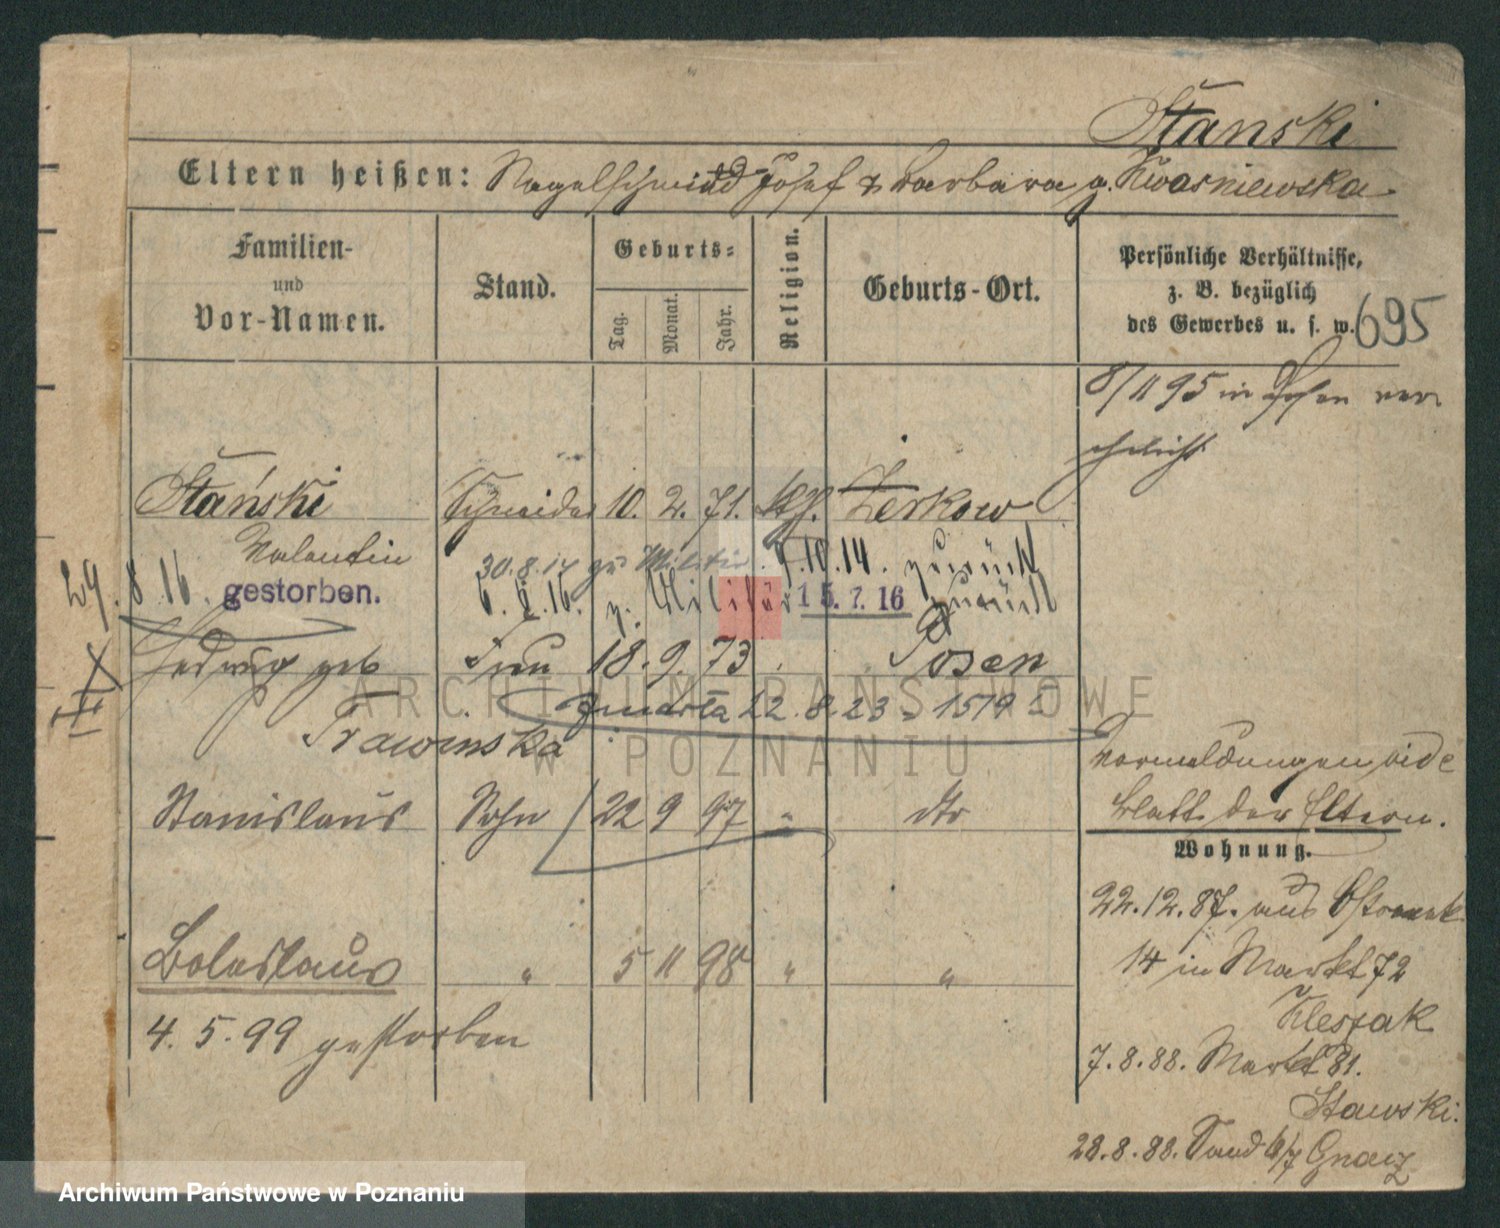 Stański
Eltern heißen: Nagelschmidt Josef & Barbara g. Kwasniewska
Familien-
und
Vor-Namen.
Stand.
Geburts-
Tag.
Monat.
Jahr.
Religion.
Geburts-Ort.
Persönliche Verhältnisse,
z. B. bezüglich
des Gewerbes u. s. w.
695
8/11 95 in Posen ver-
ehelicht
Stański Schneider 10. 2. 71. kth. Zerkow
Valentin
30.8.14 zu Militär. 7.10.14. zurück
29.8.16. gestorben.
z. Militär 15.7.16 zurück
Hedwig geb Frau 18. 9. 73 Posen
Trawinska
zmarła 12.8.23 1519
Vormeldungen vide
Blatt der Eltern.
Stanislaus Sohn 22 9 97 " dto
Wohnung.
22.12.87. aus
14 in Markt 72
Boleslaus " 5 11 98 " "
4. 5. 99 gestorben
Kleszak
7.8.88. Markt 81.
Stawski.
28.8.88. Sand 6/7 Gnacz
ARCHIWUM PAŃSTWOWE
W POZNANIU
Archiwum Państwowe w Poznaniu